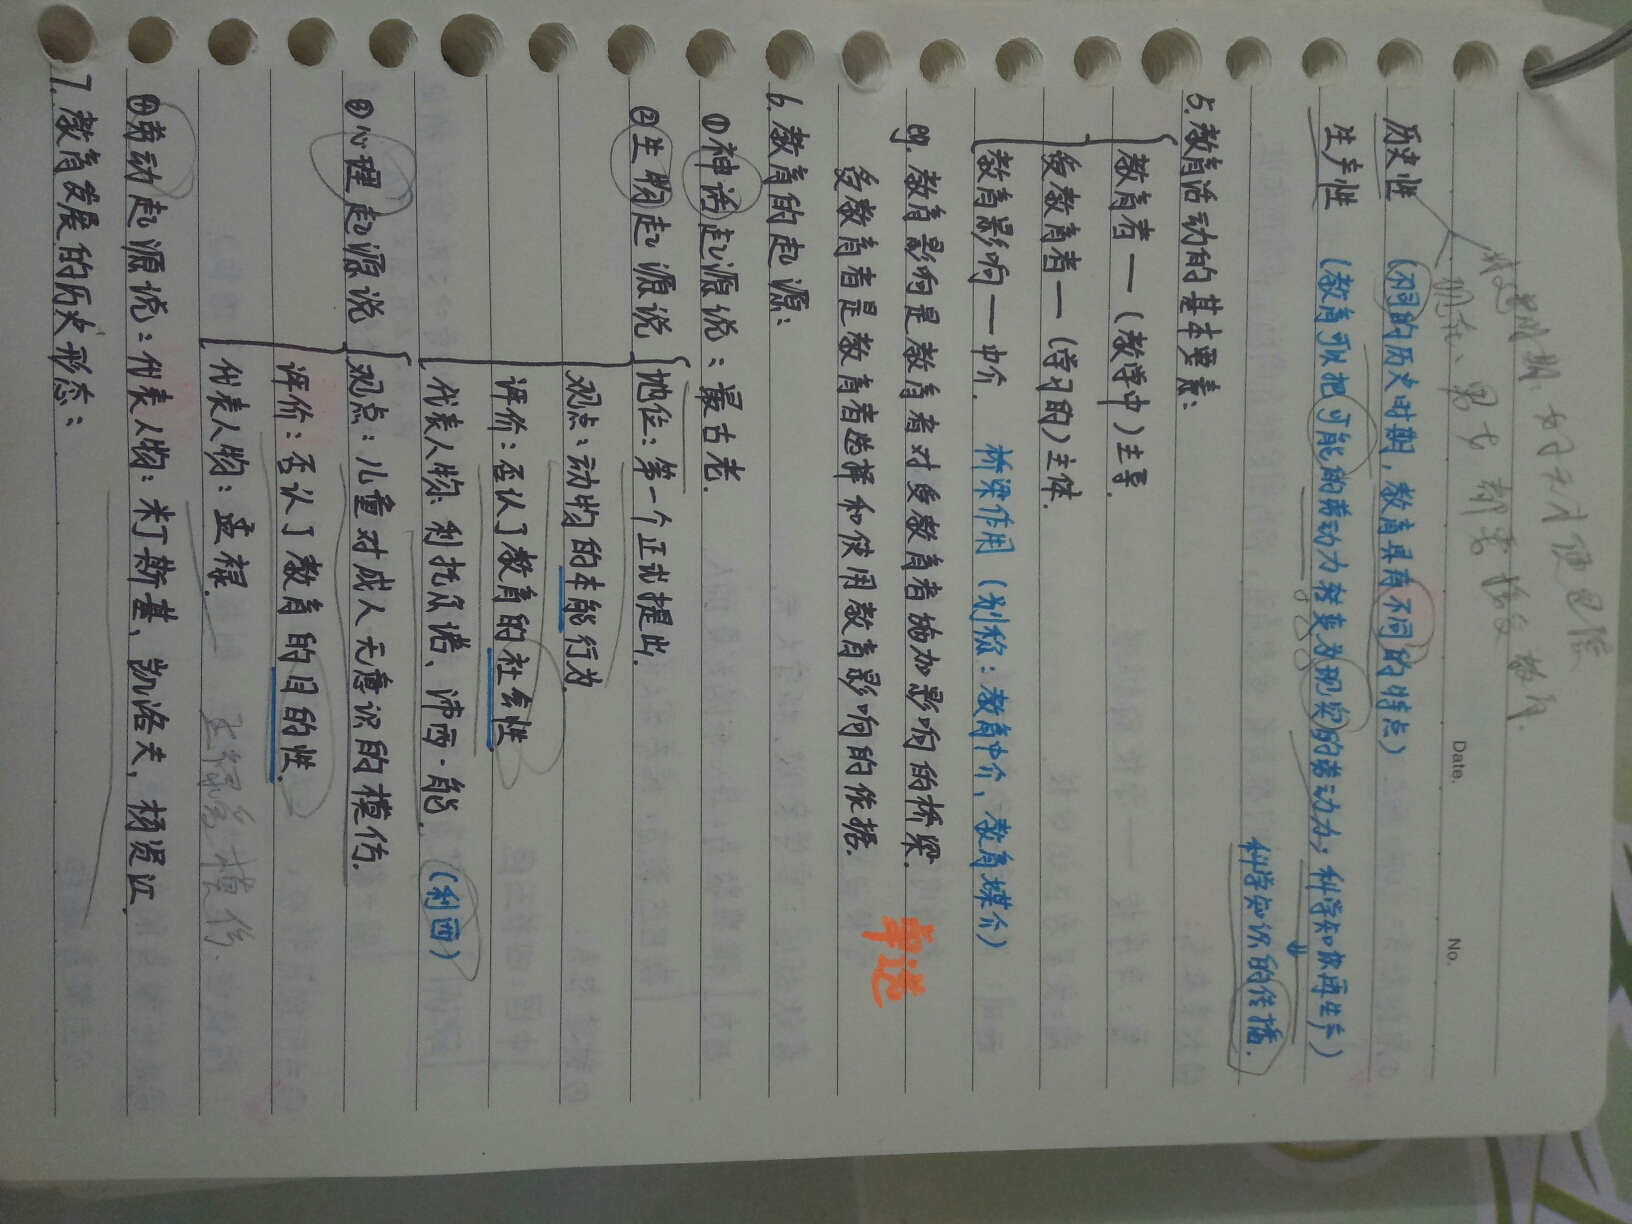 Date.
No.
历史性（不同的历史时期，教育具有不同的特点）
生产性（教育可以把可能的劳动力转变为现实的劳动力；科学知识再生产）
科学知识的传播.
5.教育活动的基本要素：
教育者——（教学中）主导.
受教育者——（学习的）主体.
教育影响——中介. 桥梁作用（别称：教育中介，教育媒介）
eg. 教育影响是教育者对受教育者施加影响的桥梁.
受教育者是教育者选择和使用教育影响的依据. 单选
6.教育的起源：
①神话起源说：最古老.
②生物起源说
地位：第一个正式提出.
观点：动物的本能行为.
评价：否认了教育的社会性
代表人物：利托尔诺、沛西·能. （利西）
③心理起源说
观点：儿童对成人无意识的模仿.
评价：否认了教育的目的性.
代表人物：孟禄.
④劳动起源说：代表人物：米丁斯基、凯洛夫、杨贤江.
7.教育发展的历史形态：